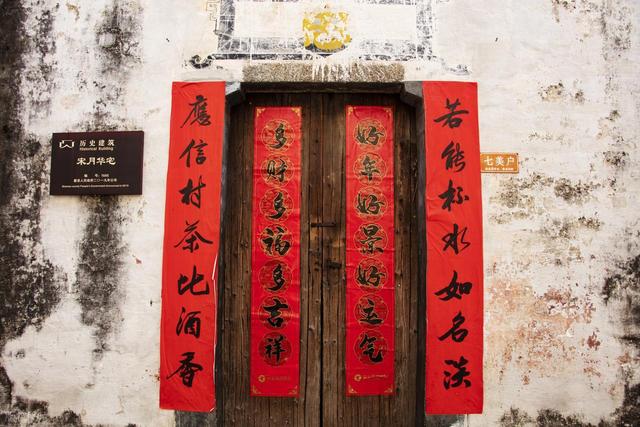 若能杯水如名淡
應信村茶比酒香
好年好景好运气
多财多福多吉祥
历史建筑
Historical Building
宋月华宅
七美户